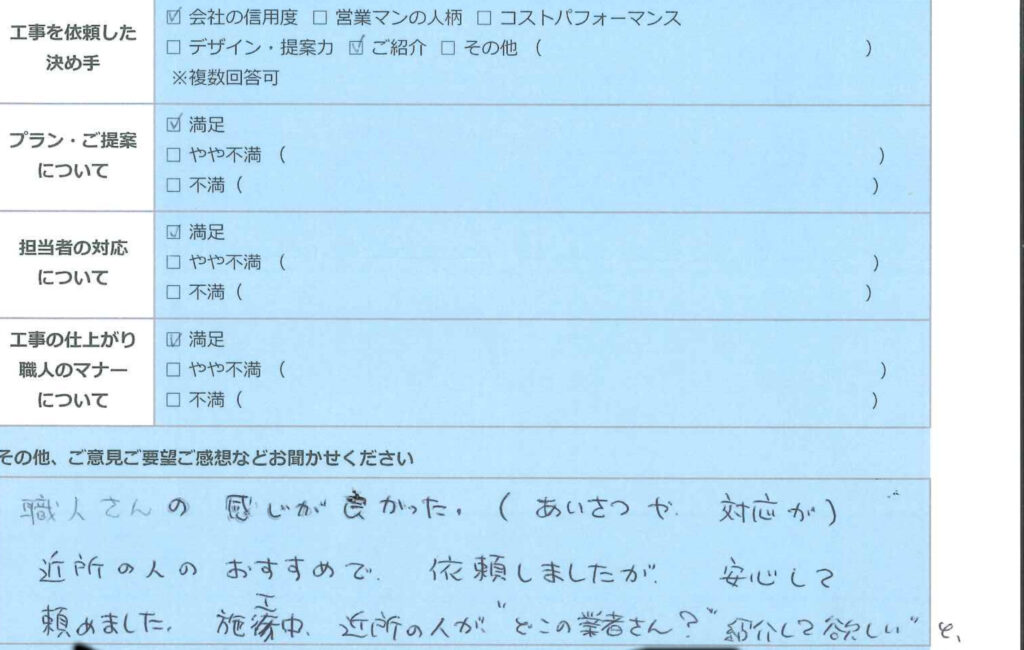 工事を依頼した
決め手
☑ 会社の信用度 □ 営業マンの人柄 □ コストパフォーマンス
□ デザイン・提案力 ☑ ご紹介 □ その他 （ ）
※複数回答可
プラン・ご提案
について
☑ 満足
□ やや不満 （ ）
□ 不満（ ）
担当者の対応
について
☑ 満足
□ やや不満 （ ）
□ 不満（ ）
工事の仕上がり
職人のマナー
について
☑ 満足
□ やや不満 （ ）
□ 不満（ ）
その他、ご意見ご要望ご感想などお聞かせください
職人さんの 感じが良かった。（あいさつや、対応が）
近所の人の おすすめで、依頼しましたが、安心して
頼めました。施工中、近所の人が、"どこの業者さん？" "紹介して欲しい" と、